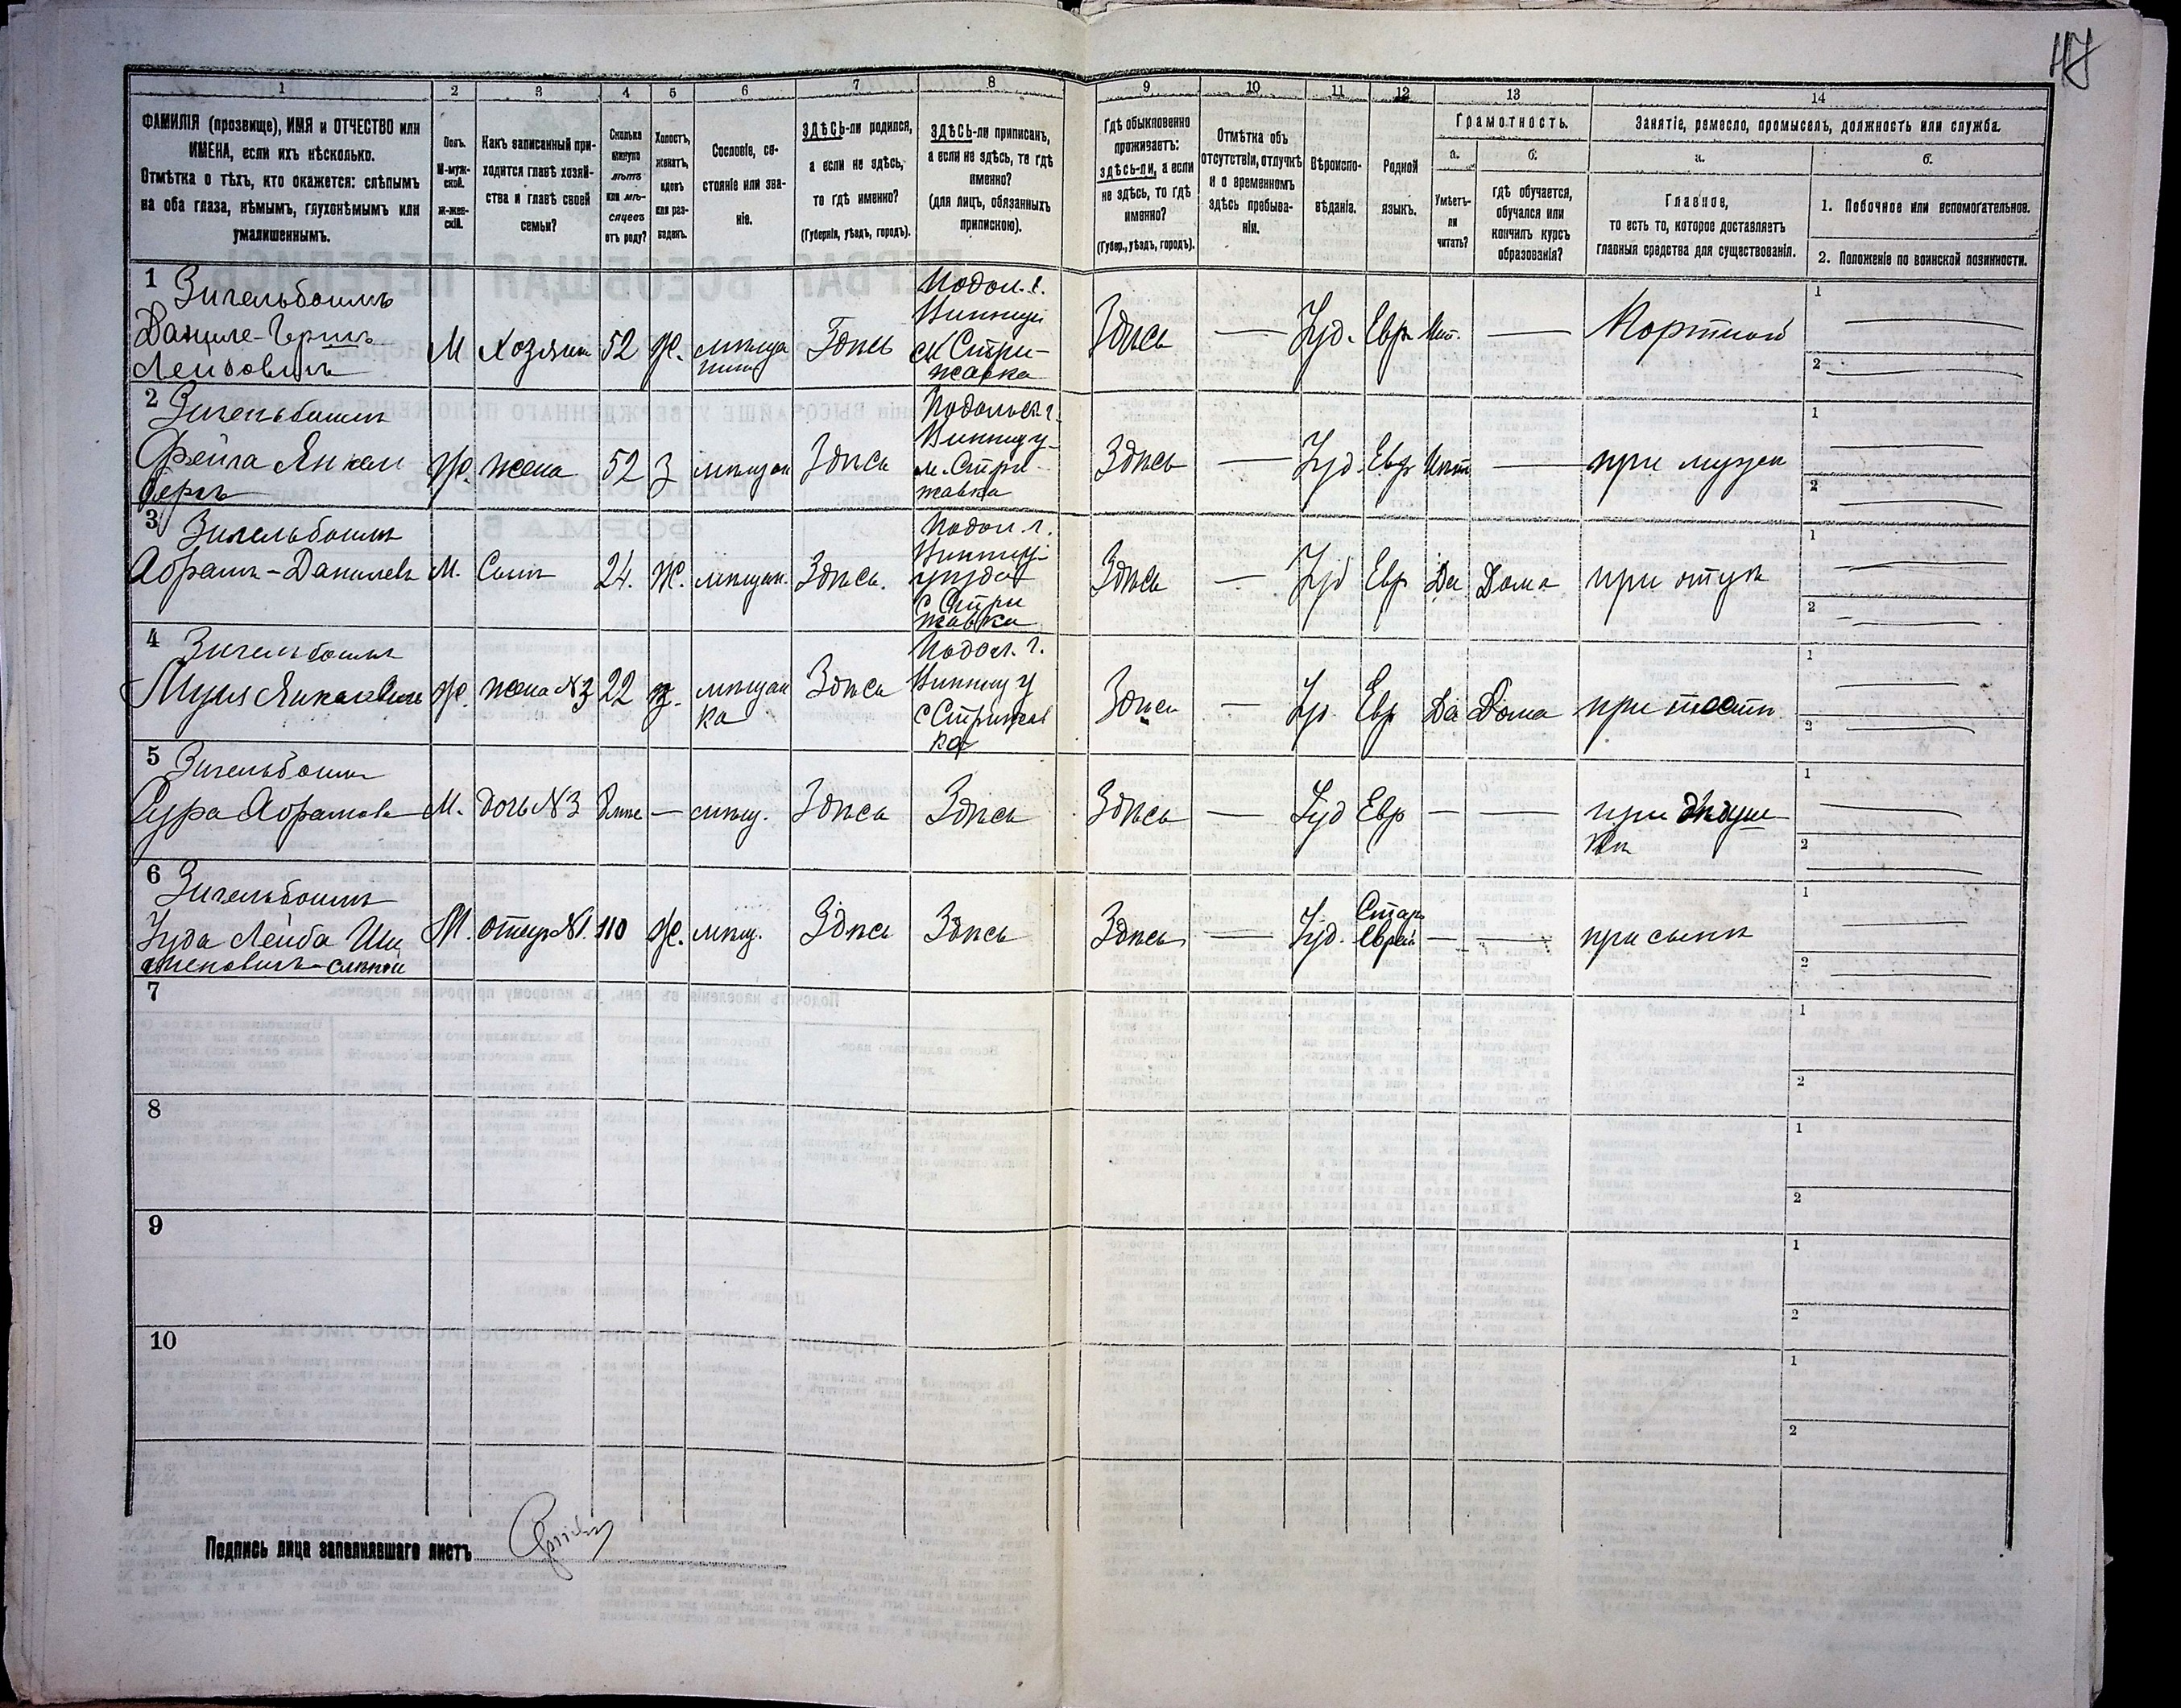 47
1
2
3
4
5
6
7
8
9
10
11
12
13
14
ФАМИЛІЯ (прозвище), ИМЯ и ОТЧЕСТВО или
ИМЕНА, если ихъ нѣсколько.
Отмѣтка о тѣхъ, кто окажется: слѣпымъ
на оба глаза, нѣмымъ, глухонѣмымъ или
умалишеннымъ.
Полъ.
М-муж-
ской.
Ж-жен-
скій.
Какъ записанный при-
ходится главѣ хозяй-
ства и главѣ своей
семьи?
Сколько
минуло
лѣтъ
или мѣ-
сяцевъ
отъ роду?
Холостъ,
женатъ,
вдовъ
или раз-
веденъ.
Сословіе, со-
стояніе или зва-
ніе.
ЗДѢСЬ-ли родился,
а если не здѣсь,
то гдѣ именно?
(Губернія, уѣздъ, городъ).
ЗДѢСЬ-ли приписанъ,
а если не здѣсь, то гдѣ
именно?
(для лицъ, обязанныхъ
припискою).
Гдѣ обыкновенно
проживаетъ:
здѣсь-ли, а если
не здѣсь, то гдѣ
именно?
(Губер., уѣздъ, городъ).
Отмѣтка объ
отсутствіи, отлучкѣ
и о временномъ
здѣсь пребыва-
ніи.
Вѣроиспо-
вѣданіе.
Родной
языкъ.
Грамотность.
а.
Умѣетъ-
ли
читать?
б.
гдѣ обучается,
обучался или
кончилъ курсъ
образованія?
Занятіе, ремесло, промыселъ, должность или служба.
а.
Главное,
то есть то, которое доставляетъ
главныя средства для существованія.
б.
1. Побочное или вспомогательное.
2. Положеніе по воинской повинности.
1 Зигельбоимъ
Даниле-Гершъ
Лейбовичъ
М Хозяинъ 52 Ж. мѣща
нинъ
Здѣсь
Подол. г.
Винниц.
м Стри-
жавка
Здѣсь — Іуд. Евр. Нѣт. — Портной
1
2
2 Зигельбоимъ
Фейга Янкел
берг
Ж. жена 52 З мѣщан Здѣсь
Подольск г.
Винниц у
м. Стри-
жавка
Здѣсь — Іуд. Евр Нѣт — при мужѣ
1
2
3 Зигельбоимъ
Абрамъ-Данилевъ М. Сынъ 24. Ж. мѣщан. Здѣсь.
Подол. г.
Винниц.
уѣзда
с Стри
жавка
Здѣсь — Іуд Евр Да Дома при отцѣ
1
2
4 Зигельбоимъ
Ж. жена №3 22 з. мѣщан
ка
Здѣсь
Подол. г.
Винниц у
с Стрижав
ка
Здѣсь — Іуд Евр Да Дома при тестѣ
1
2
5 Зигельбоимъ
Сура Абрамова М. дочь №3 — мѣщ. Здѣсь Здѣсь Здѣсь — Іуд Евр — — при дѣдуш
кѣ
1
2
6 Зигельбоимъ
Іуда Лейба
слѣпой
М. отецъ №1. 110 Ж. мѣщ. Здѣсь Здѣсь Здѣсь — Іуд.
Стар
Еврей
— — при сынѣ
1
2
7
1
2
8
1
2
9
1
2
10
1
2
Подпись лица заполнявшаго листъ